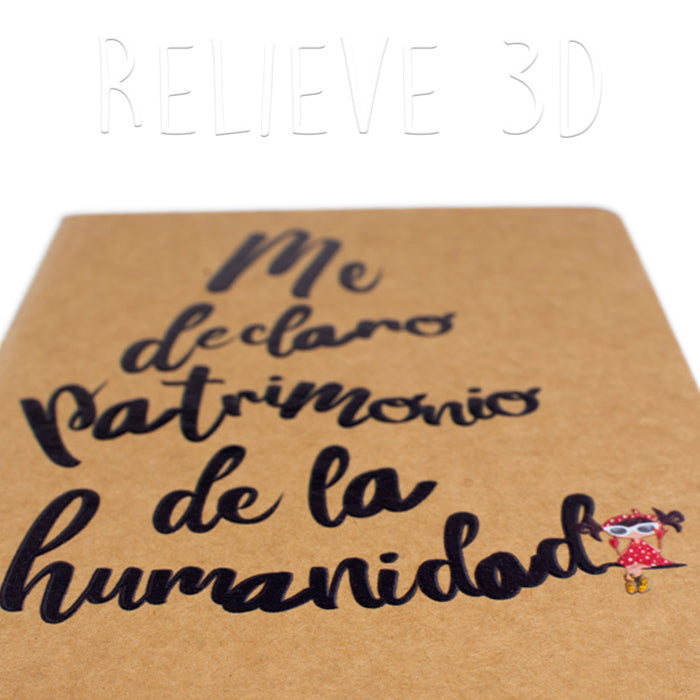 RELIEVE 3D
Me
declaro
patrimonio
de la
humanidad